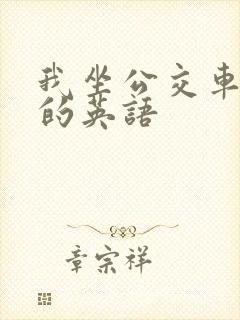 我坐公交車
的英語
章宗祥